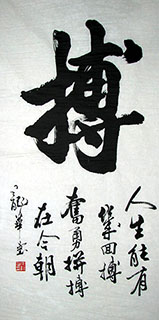 搏
人生能有
几回搏
奮勇拼搏
在今朝